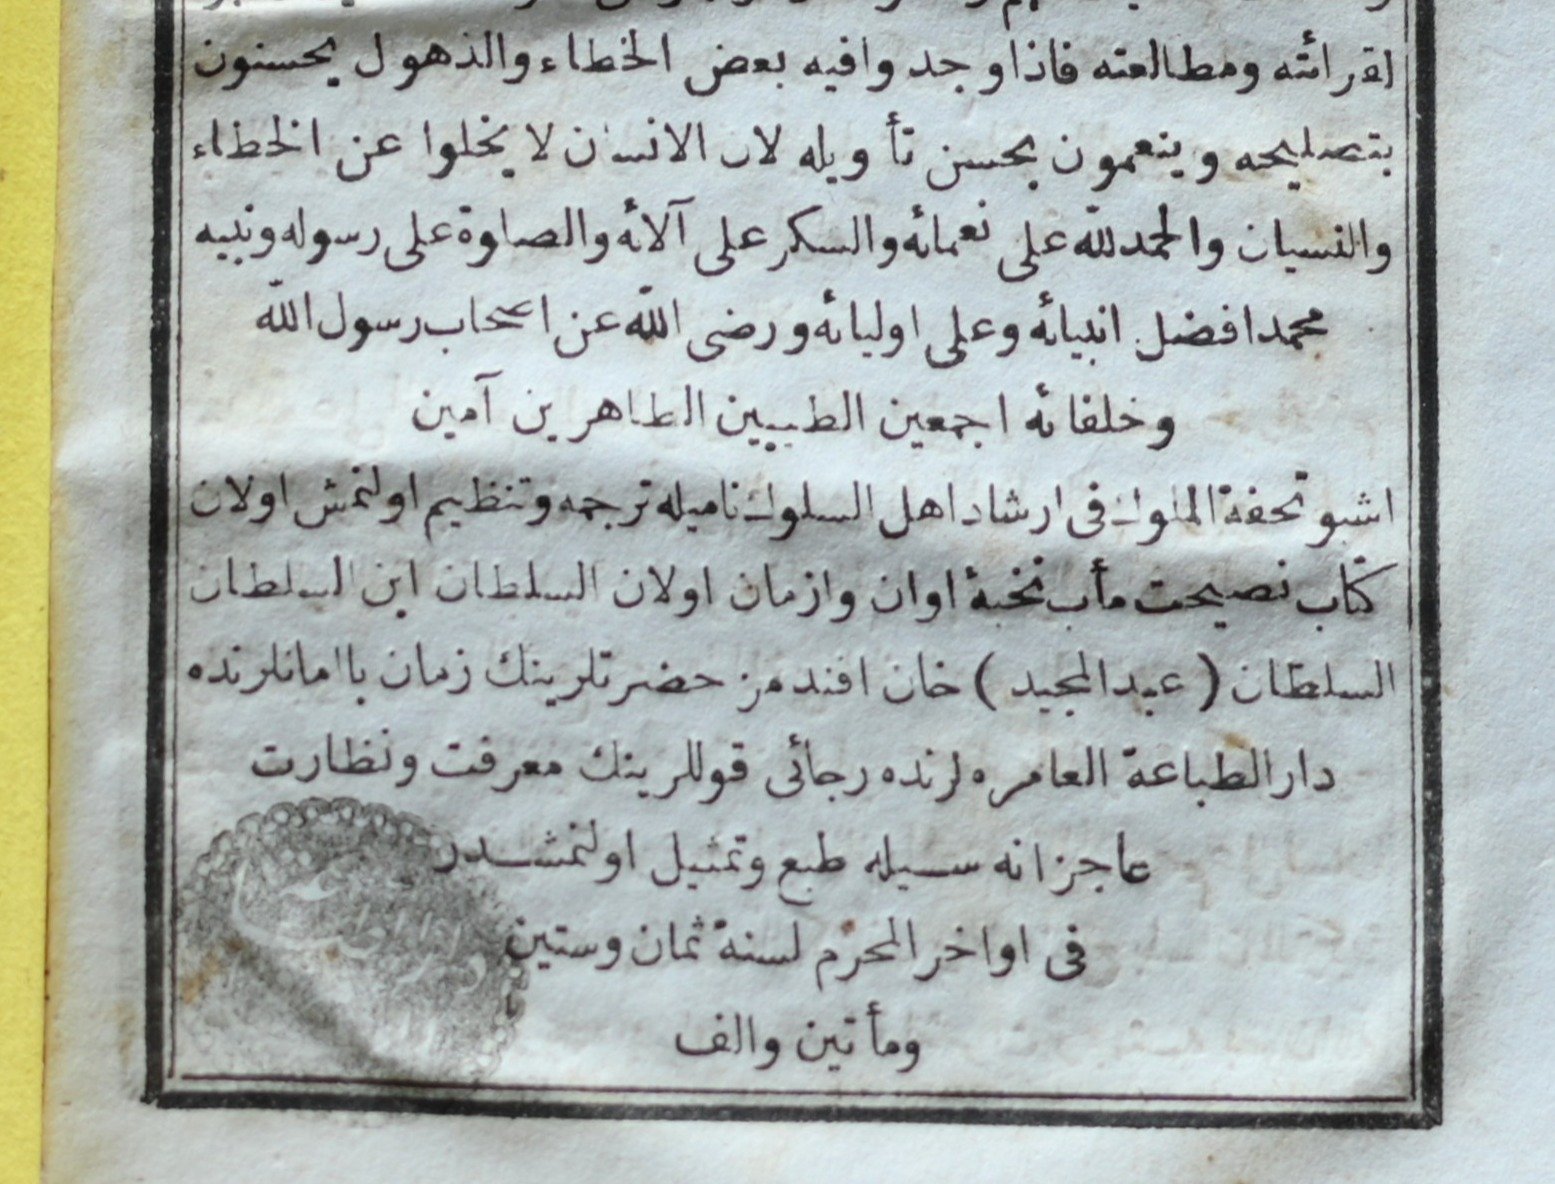 لقرائته ومطالعته فاذا وجد وافيه بعض الخطاء والذهول يحسنون
بتصليحه وينعمون بحسن تأويله لان الانسان لا يخلوا عن الخطاء
والنسيان والحمد لله على نعمائه والسكر على آلائه والصلوة على رسوله ونبيه
محمد افضل انبيائه وعلى اوليائه ورضى الله عن اصحاب رسول الله
وخلفائه اجمعين الطيبين الطاهرين آمين
اشبو تحفة الملوك فى ارشاد اهل السلوك ناميله ترجمه وتنظيم اولنمش اولان
كتاب نصيحت مأب نخبۀ اوان وازمان اولان السلطان ابن السلطان
السلطان (عبد المجيد) خان افندمز حضرتلرينك زمان باامانلرنده
دار الطباعة العامره لرنده رجائى قوللرينك معرفت ونظارت
عاجزانه سيله طبع وتمثيل اولنمشدر
فى اواخر المحرم لسنة ثمان وستين
ومأتين والف